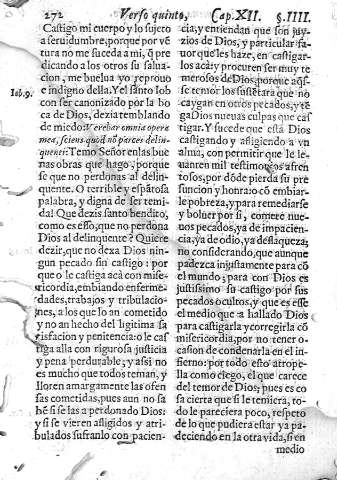 272 Verso quinto, Cap.XII. §.IIII.
Castigo mi cuerpo y lo sujeto
a seruidumbre, porque por vẽ
tura no me suceda a mi, q̃ pre
dicando a los otros su salua-
cion, me buelua yo reprouo
e indigno della. Y el santo Iob
Iob.9.
con ser canonizado por la bo
ca de Dios, dezia temblando
de miedo: Verebar omnia opera
mea, sciens quod nõ parcer delin-
quenti: Temo Señor en las bue
nas obras que hago, porque
se que no perdonas al delin-
quente. O terrible y espãtosa
palabra, y digna de ser temi-
da! Que dezis santo bendito,
como es esso, que no perdona
Dios al delinquente? Quiere
dezir, que no deza Dios nin-
gun pecado sin castigo: por
que o le castiga acà con mise-
ricordia, embiando enferme-
dades, trabajos y tribulacio-
nes, a los que lo an cometido
y no an hecho del ligitima sa
tisfacion y penitencia: o le cas
tiga alla con rigurosa justicia
y pena perdurable; y assi no
es mucho que todos teman, y
lloren amargamente las ofen
sas cometidas, pues aun no sa
bẽ si se las a perdonado Dios:
y si se vieren afligidos y atri-
bulados sufranlo con pacien-
cia, y entiendan que son juy-
zios de Dios, y particular fa-
uor que les haze, en castigar-
los acà: y procuren ser muy te
merosos de Dios, porque aq̃s-
se temor los sustẽtara que no
caygan en otros pecados, y tẽ
ga Dios nueuas culpas que cas
tigar. Y sucede que està Dios
castigando y afligiendo a vn
alma, con permitir que le le-
uanten mil testimonios afren
tosos, por dõde pierda su pre
suncion y honra: o cõ embiar-
le pobreza, y para remediarse
y boluer por si, comete nue-
uos pecados, ya de impacien-
cia, ya de odio, ya de flaqueza;
no considerando, que aunque
padezca injustamente para cõ
el mundo; para con Dios es
justissimo su castigo por sus
pecados ocultos, y que es esse
el medio que a hallado Dios
para castigarla y corregirla cõ
misericordia, por no tener o-
casion de condenarla en el in-
fierno; por todo esto atrope-
lla como ciego, el que carece
del temor de Dios; pues es co
sa cierta que si le temiera, to-
do le pareciera poco, respeto
de lo que pudiera estar ya pa-
deciendo en la otra vida, si en
medio